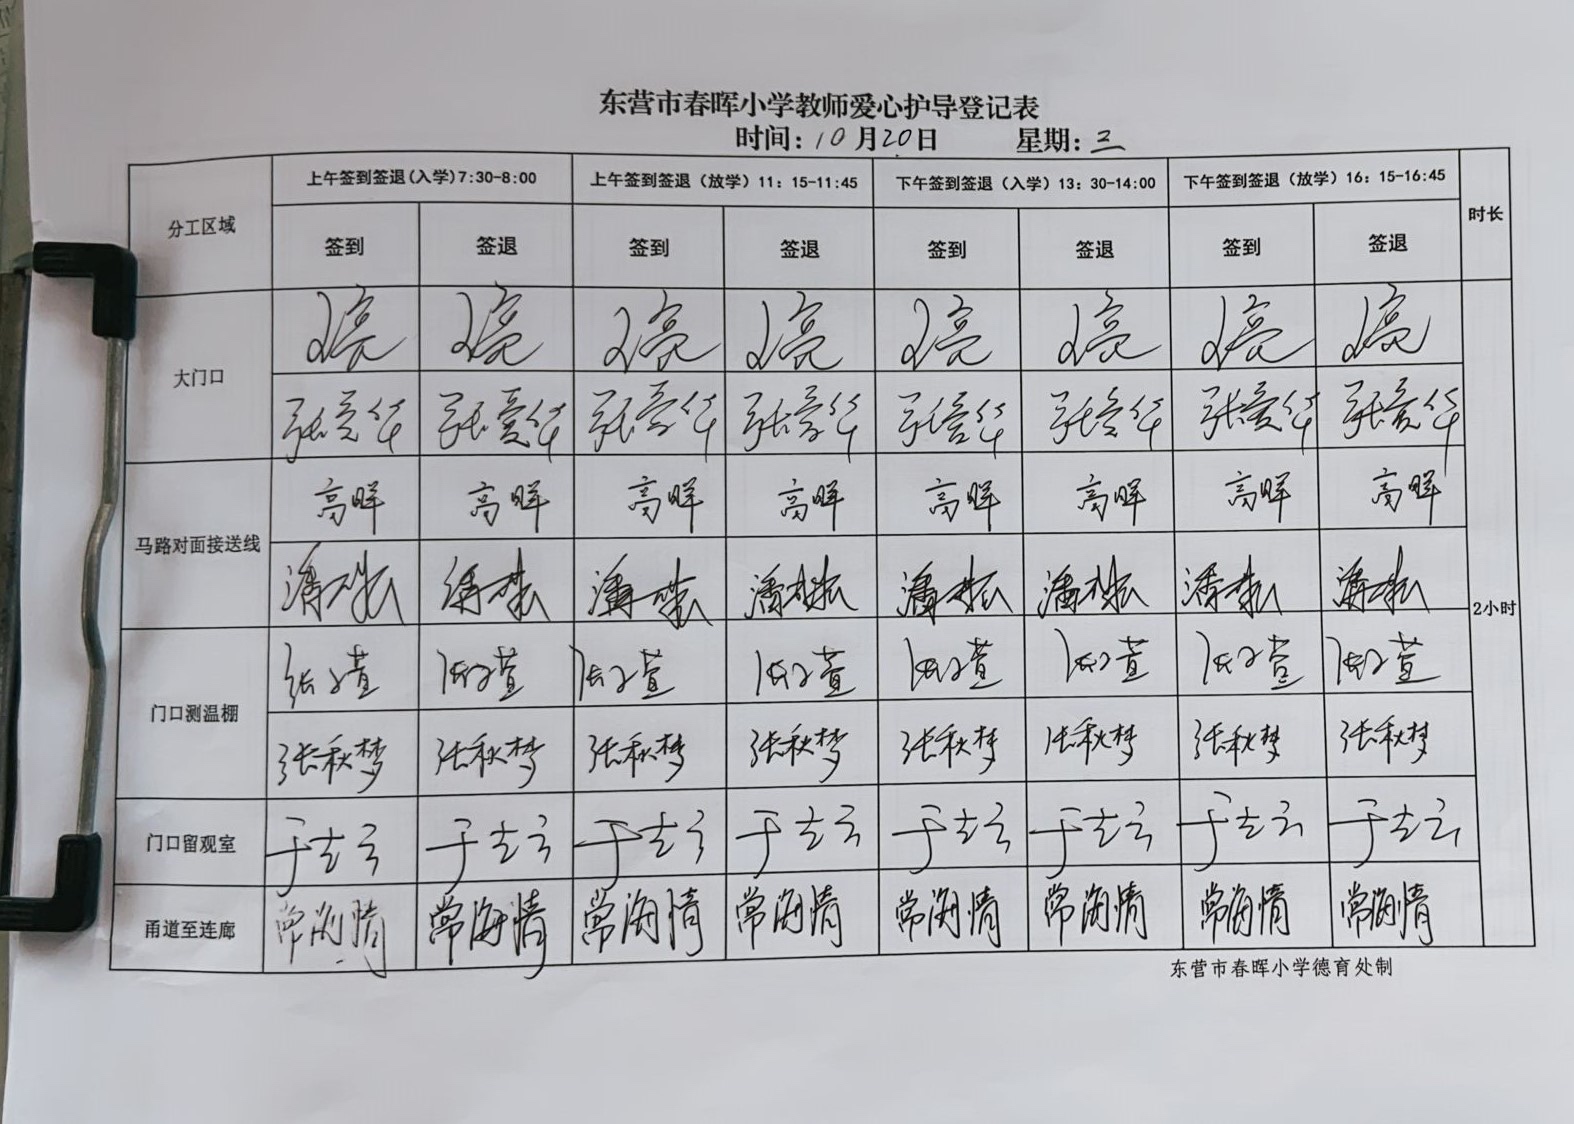 东营市春晖小学教师爱心护导登记表
时间：10月20日 星期：三
分工区域 上午签到签退(入学)7:30-8:00 上午签到签退（放学）11：15-11:45 下午签到签退（入学）13：30-14:00 下午签到签退（放学）16：15-16:45 时长
签到 签退 签到 签退 签到 签退 签到 签退
大门口
张爱华 张爱华 张爱华 张爱华 张爱华 张爱华 张爱华 张爱华
马路对面接送线 高晖 高晖 高晖 高晖 高晖 高晖 高晖 高晖
2小时
门口测温棚 张子萱 张子萱 张子萱 张子萱 张子萱 张子萱 张子萱 张子萱
张秋梦 张秋梦 张秋梦 张秋梦 张秋梦 张秋梦 张秋梦 张秋梦
门口留观室 于志云 于志云 于志云 于志云 于志云 于志云 于志云 于志云
甬道至连廊 常海情 常海情 常海情 常海情 常海情 常海情 常海情 常海情
东营市春晖小学德育处制